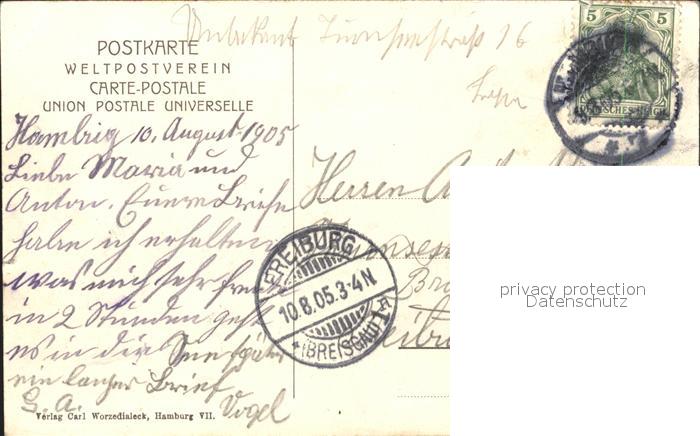 Unbekannt Turnseestraße 16
POSTKARTE
WELTPOSTVEREIN
CARTE-POSTALE
UNION POSTALE UNIVERSELLE
5 5
DEUTSCHES REICH
Hamburg 10. August 1905
Liebe Maria und
Anton. Euere Briefe
habe ich erhalten
was mich sehr freut
in 2 Stunden geht
es in die See später
ein langer Brief
G. A. Vogel
Herren
FREIBURG
10.8.05.3-4N.
* (BREISGAU) 1
privacy protection
Datenschutz
Verlag Carl Worzedialeck, Hamburg VII.